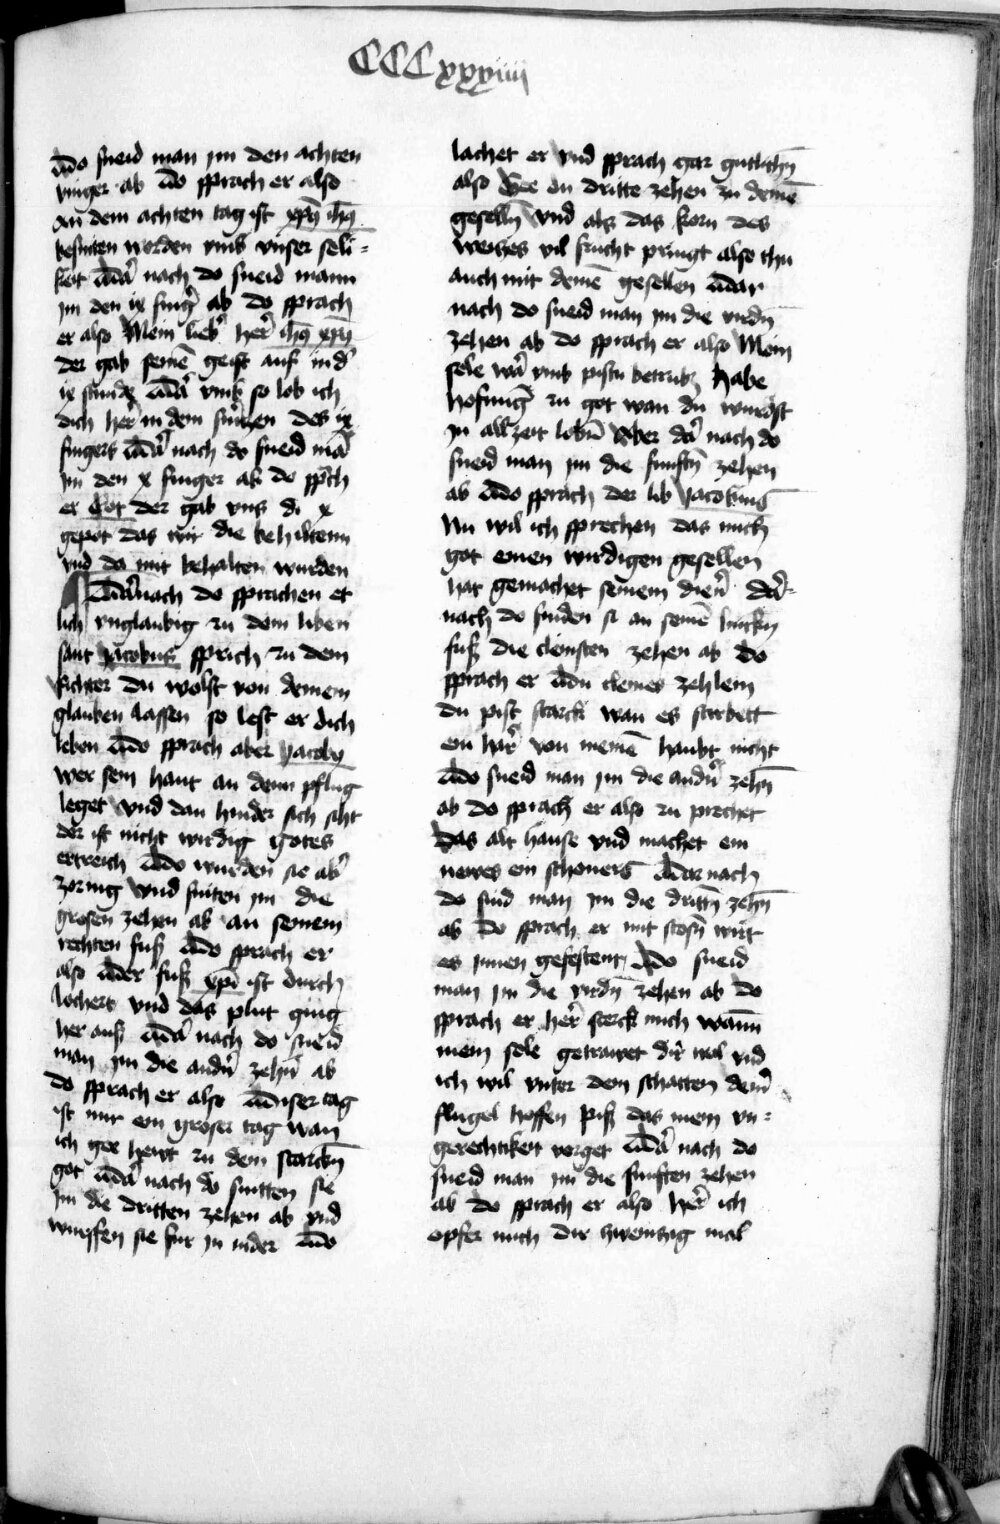 CCCxxxiiij
Do sneid man jm den achten
vinger ab Do sprach er also
An dem achten tag ist xp̄s ih̄s
besniten worden vmb vnser seli-
keit Dar nach do sneid mann
jm den ix fing̉ ab do sprach
er also Mein lieb̉ her̉ ih̄s xp̄s
der gab seinē geist auf in d̉
ix stund Dar vmb so lob ich
dich her̉ in dem smerzen des ix
fingers Dar̉ nach do sneid mā
jm den x finger ab do sprach
er Got der gab vns di x
gepot das wir die behilten
vnd da mit behalten wurden
Dar nach do sprachen et
lich vnglaubig zu dem liben
sant Jacobus sprich zu dem
richter du wolst von deinem
glauben lassen so lest er dich
leben Do sprach aber Jacobus
wer sein hant an denn pflug
leget vnd dan hinder sich siht
der ist nicht wirdig gotes
ertreich Do wurden sie ab̉
zornig vnd sniten jm die
grosen zehen ab an seinem
rechten fuß Do sprach er
also Der fuß xp̄i ist durch
lochert vnd das plut ging
her auß Dar̉ nach do sneid
man jm die andn̉ zehn̄ ab
do sprach er also Diser tag
ist mir ein groser tag wan
ich gee hewt zu dem starckn̄
got Dar̉ nach do snitten sie
jm die dritten zehen ab vnd
wurffen sie fur jn nider Do
lachet er vnd sprach gar gutlichn̄
also Gee du dritte zehen zu deinē
geselln̄ vnd als das korn des
weitzes vil frucht pringt also thu
auch mit deinē gesellen Dar
nach do sneid man jm die virdn̄
zehen ab do sprach er also Mein
sele war̉ vmb pistu betrubt habe
hofnung zu got wan du wirdst
jn allzeit lobn̄ Aber dar̉ nach do
sneid man jm die funftn̄ zehen
ab Do sprach der lib Jacobus
Nu wil ich sprechen das mich
got einen wirdigen gesellen
hat gemachet seinem dien̉ Dar̉-
nach do sniden si an seinē lincken
fuß die cleinsten zehen ab do
sprach er Du cleines zehlein
du pist starck wan es stirbett
ein har̉ von meinē haubt nicht
Do sneid man jm die andn̉ zehn̄
ab do sprach er also zu prechet
das alt hause vnd machet ein
newes ein schoners Dar nach
do snid man jm die drittn̄ zehn̄
ab do sprach er mit stosn̄ wirt
es jnnen gefestent Do sneid
man jm die virdn̄ zehen ab do
sprach er her̉ sterck mich wann
mein sele getrawet dir wol vnd
ich wil vnter dem schatten dein̉
flugel hoffen piß das mein vn-
gerechtikeit verget Dar̉ nach do
sneid man jm die funften zehen
ab do sprach er also her̉ ich
opfer mich dir zweintzig mal